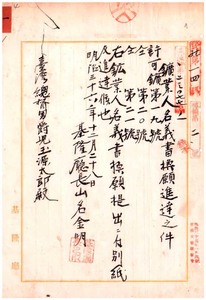 鑛業人名義書換願進達之件
許可鑛第一九號
仝 第二〇號
仝 第二一號
右鑛業人名義書換願提出ニ付別紙
及進達候也
明治三十六年十二月二十八日
基隆廳長山名金明
臺灣總督男爵兒玉源太郎殿
基隆廳